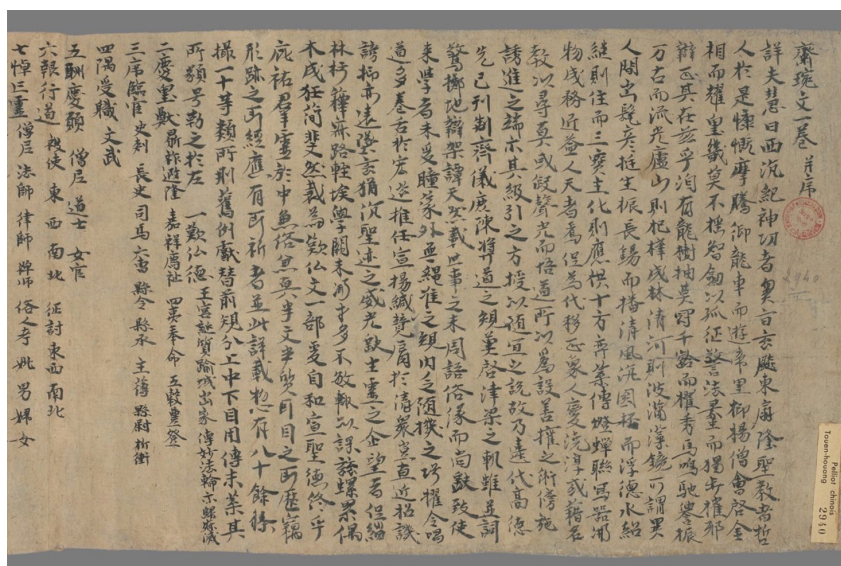 齋琬文一卷并序
詳夫慧日西沉紀神功者奧旨玄飈東扇隆聖教者哲
人於是慷慨摩騰御龍車而遊帝里抑揚僧會啓金
相而耀皇畿莫不摽智劍以孤征警法雷而獨步摧邪
辯正其在茲乎洎有龍樹抽英冠千齡而擢秀馬鳴馳譽振
万古而流光廬山則杞梓成林清河則波瀾藻鏡可謂異
人間出髦彥挺生振長錫而播清風汎圓杯而浮德水紹
繼則住而三寶主化則應供十方弈葉傳燈蟬聯寫器
物成務匠益人天者焉但為代移正像人變澆淳或藉名
教以尋真或假聲光而悟道所以爲設善權之術傍施
誘進之端示其級引之方授以隨宜之説故乃遠代高德
先已刊制齋儀庶陳獎道之規冀啓津梁之軌雖並詞
驚擲地辯架譚天然載世事之未周語俗緣而尚缺致使
來學者未受瞳蒙外無繩准之規內乏隨機之巧擢令唱
道多卷舌於宏筵推任宣揚緘贊脣於清衆豈直近招譏
謗抑亦遠墜玄猷沉聖迹之威光缺生靈之企望者但緇
林朽籜寂路輕埃學闕未聞才多不敏輒以課茲螺累偶
木成狂簡斐然裁為歎仏文一部爰自和宣聖德終乎
庇祐羣靈於中兼俗兼真半文半質耳目之所歷竊
形跡之所經應有所祈者並此詳載惣有八十餘條
撮一十等類所則舊例獻替前規分上中下目用傳末葉其
所類号勒之於左 一歎仏德 王宮誕質 踰城出家 傳妙法輪 示歸寂滅
二慶皇猷 鼎祚遐隆 嘉祥薦祉 四夷奉命 五穀豐登
三序臨官 刺史 長史 司馬 六曹 縣令 縣丞 主簿 縣尉 折衝
四隅受職 文武
五酬慶願 僧尼 道士 女官
六報行道 被使 東西南北 征討東西南北
七悼亡靈 僧尼 法師 律師 禪師 俗人 考妣 男 婦女
2940
Pelliot chinois
Touen-houang
2940